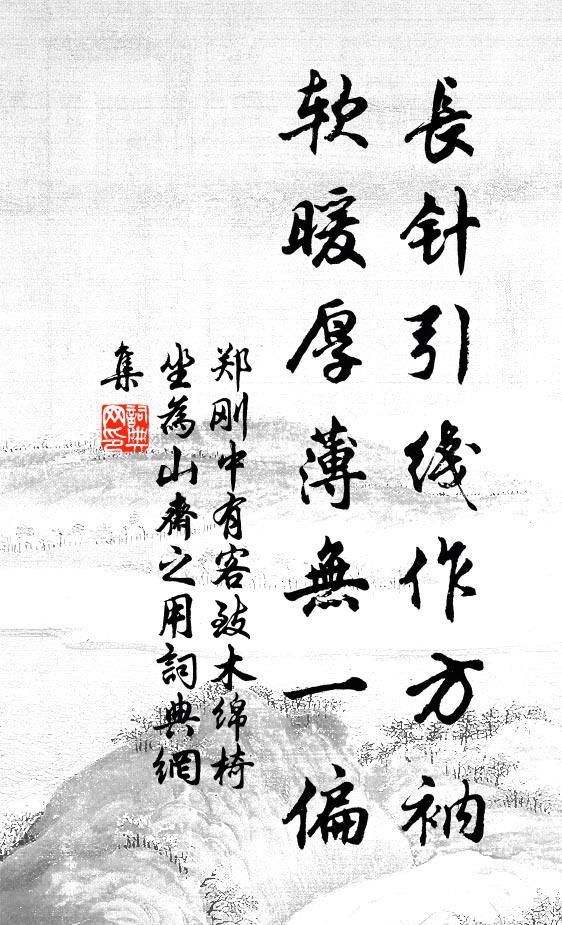 長针引线作方衲
软暖厚薄無一偏
郑刚中有客致木绵椅
坐為山齋之用詞典網
集
詞典
网印